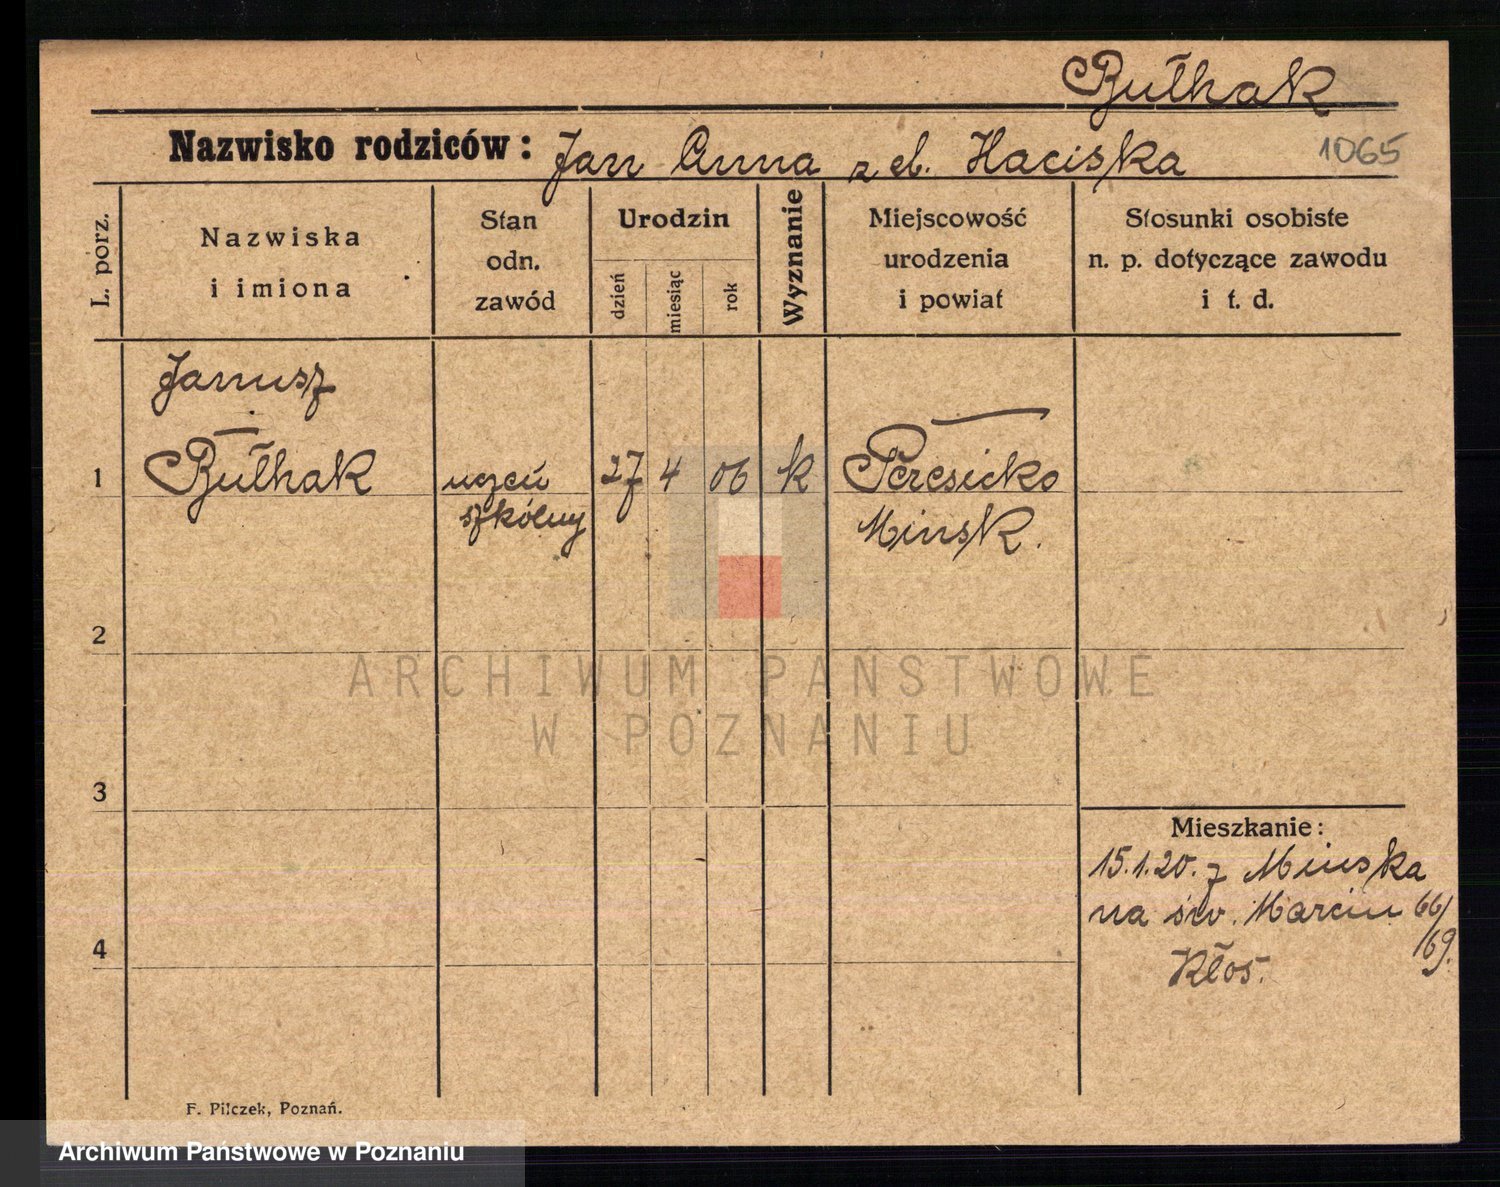 Bułhak
Nazwisko rodziców: Jan Anna z eb. Haciska
1065
L. porz.
Nazwiska
i imiona
Stan
odn.
zawód
Urodzin
dzień
miesiąc
rok
Wyznanie
Miejscowość
urodzenia
i powiat
Stosunki osobiste
n. p. dotyczące zawodu
i t. d.
Janusz
1 Bułhak uczeń 27 4 06 k Peresieko
szkólny Minsk.
2
ARCHIWUM PAŃSTWOWE
W POZNANIU
3
Mieszkanie:
15.1.20. z Minska
na św. Marcin 66/
69.
4
Kłos.
F. Pilczek, Poznań.
Archiwum Państwowe w Poznaniu